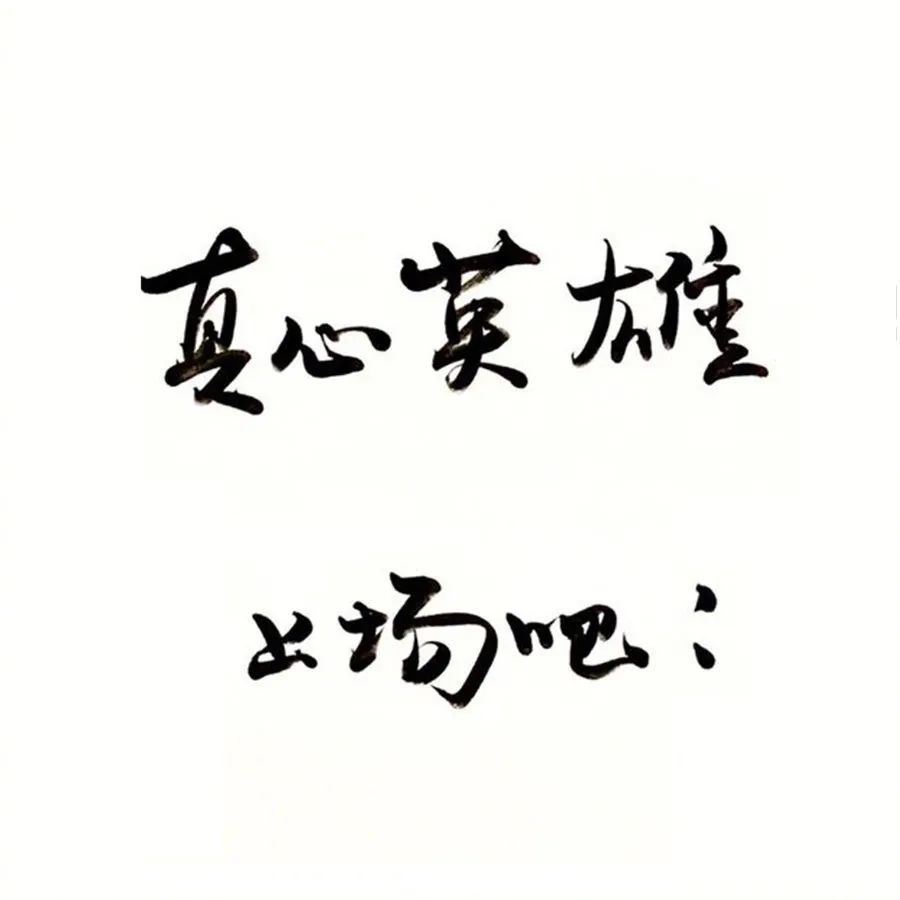 真心英雄
出场吧!